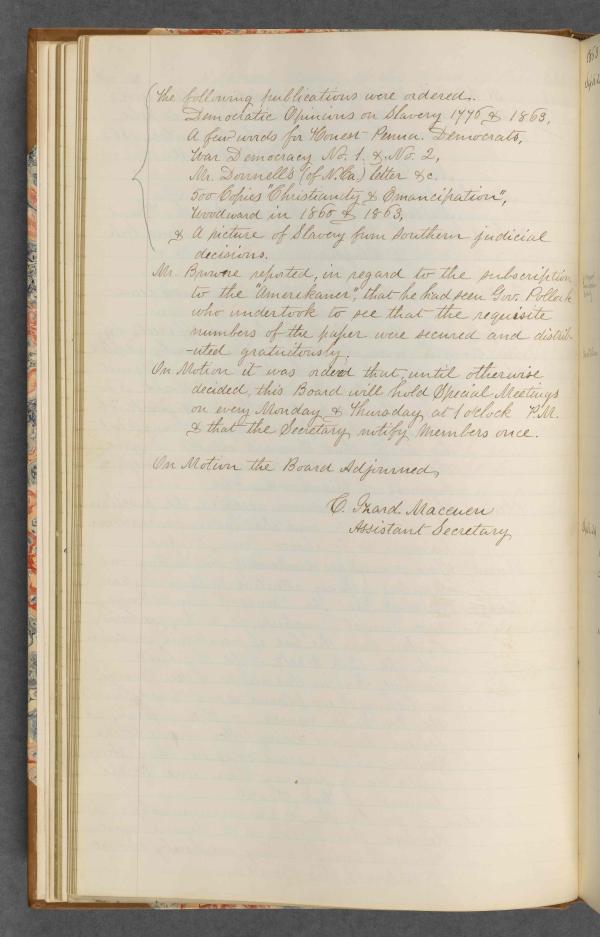 The following publications were ordered.
Democratic Opinions on Slavery 1776 & 1863,
A few words for Honest Penna. Democrats,
War Democracy No. 1. & No. 2,
Mr. Donnell's (of N.Ca) letter &c.
500 Copies "Christianity & Emancipation",
Woodward in 1860 & 1863,
& A picture of Slavery from Southern judicial
decisions.
Mr. Browne reported, in regard to the subscription
to the "Amerikaner", that he had seen Gov. Pollock
who undertook to see that the requisite
numbers of the paper were secured and distrib-
-uted gratuitously.
On Motion it was orderd that, until otherwise
decided, this Board will hold Special Meetings
on every Monday & Thursday at 1 oclock P.M.
& that the Secretary notify Members once.
On Motion the Board Adjourned,
C. Izard Maceuen
Assistant Secretary
1863